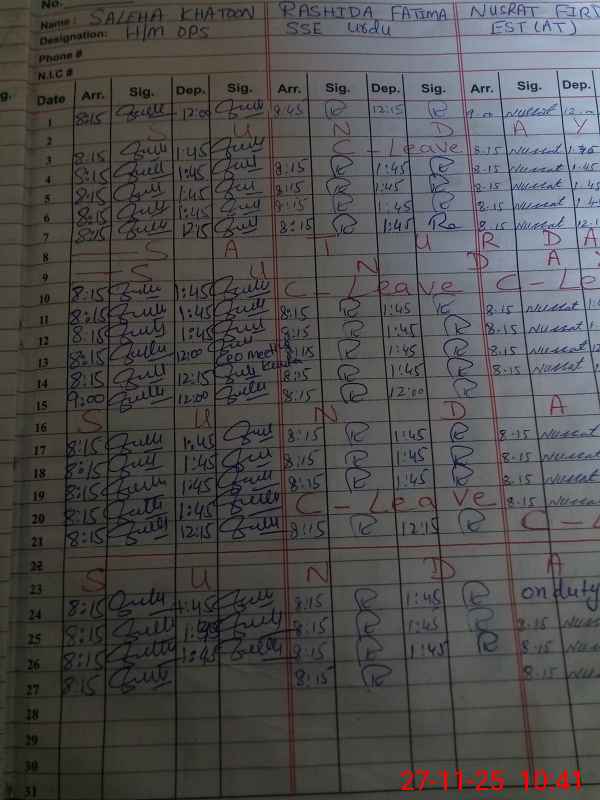 No.
Name: SALEHA KHATOON RASHIDA FATIMA NUSRAT FIR
Designation: H/M OPS SSE urdu EST(AT)
Phone #
N.I.C #
Date Arr. Sig. Dep. Sig. Arr. Sig. Dep. Sig. Arr. Sig. Dep.
1 8:15 12:00 8:45 R 12:15 R 9.00 Nusrat 12.00
2 S U N D A Y
3 8:15 1:45 C - Leave 8.15 Nusrat 1.45
4 8:15 1:45 8:15 R 1:45 R 8.15 Nusrat 1.45
5 8:15 1:45 8:15 R 1:45 R 8.15 Nusrat 1.45
6 8:15 1:45 8:15 R 1:45 R 8.15 Nusrat 1.45
7 8:15 12:15 8:15 R 1:45 R 8.15 Nusrat 12.1
8 S A T U R D A
9 S U N D A Y
10 8:15 1:45 C - Leave C - Le
11 8:15 1:45 8:15 R 1:45 R 8.15 Nusrat
12 8:15 1:45 8:15 R 1:45 R 8.15 Nusrat
13 8:15 12:00 8:15 R 1:45 R 8.15 Nusrat
14 8:15 12:15 8:15 R 1:45 R 8.15 Nusrat
15 9:00 12:00 8:15 R 12:00 R
16 S U N D A
17 8:15 1:45 8:15 R 1:45 R 8.15 Nusrat
18 8:15 1:45 8:15 R 1:45 R 8.15 Nusrat
19 8:15 1:45 8:15 R 1:45 R 8.15 Nusrat
20 8:15 1:45 C - Leave 8.15 Nusrat
21 8:15 12:15 8:15 R 12:15 R C - L
22
23 S U N D A
24 8:15 1:45 8:15 R 1:45 R on duty
25 8:15 1:45 8:15 R 1:45 R 8.15 Nus
26 8:15 1:45 8:15 R 1:45 R 8.15 Nus
27 8:15 8:15 R 8.15 Nus
28
29
30
31
27-11-25 10:41